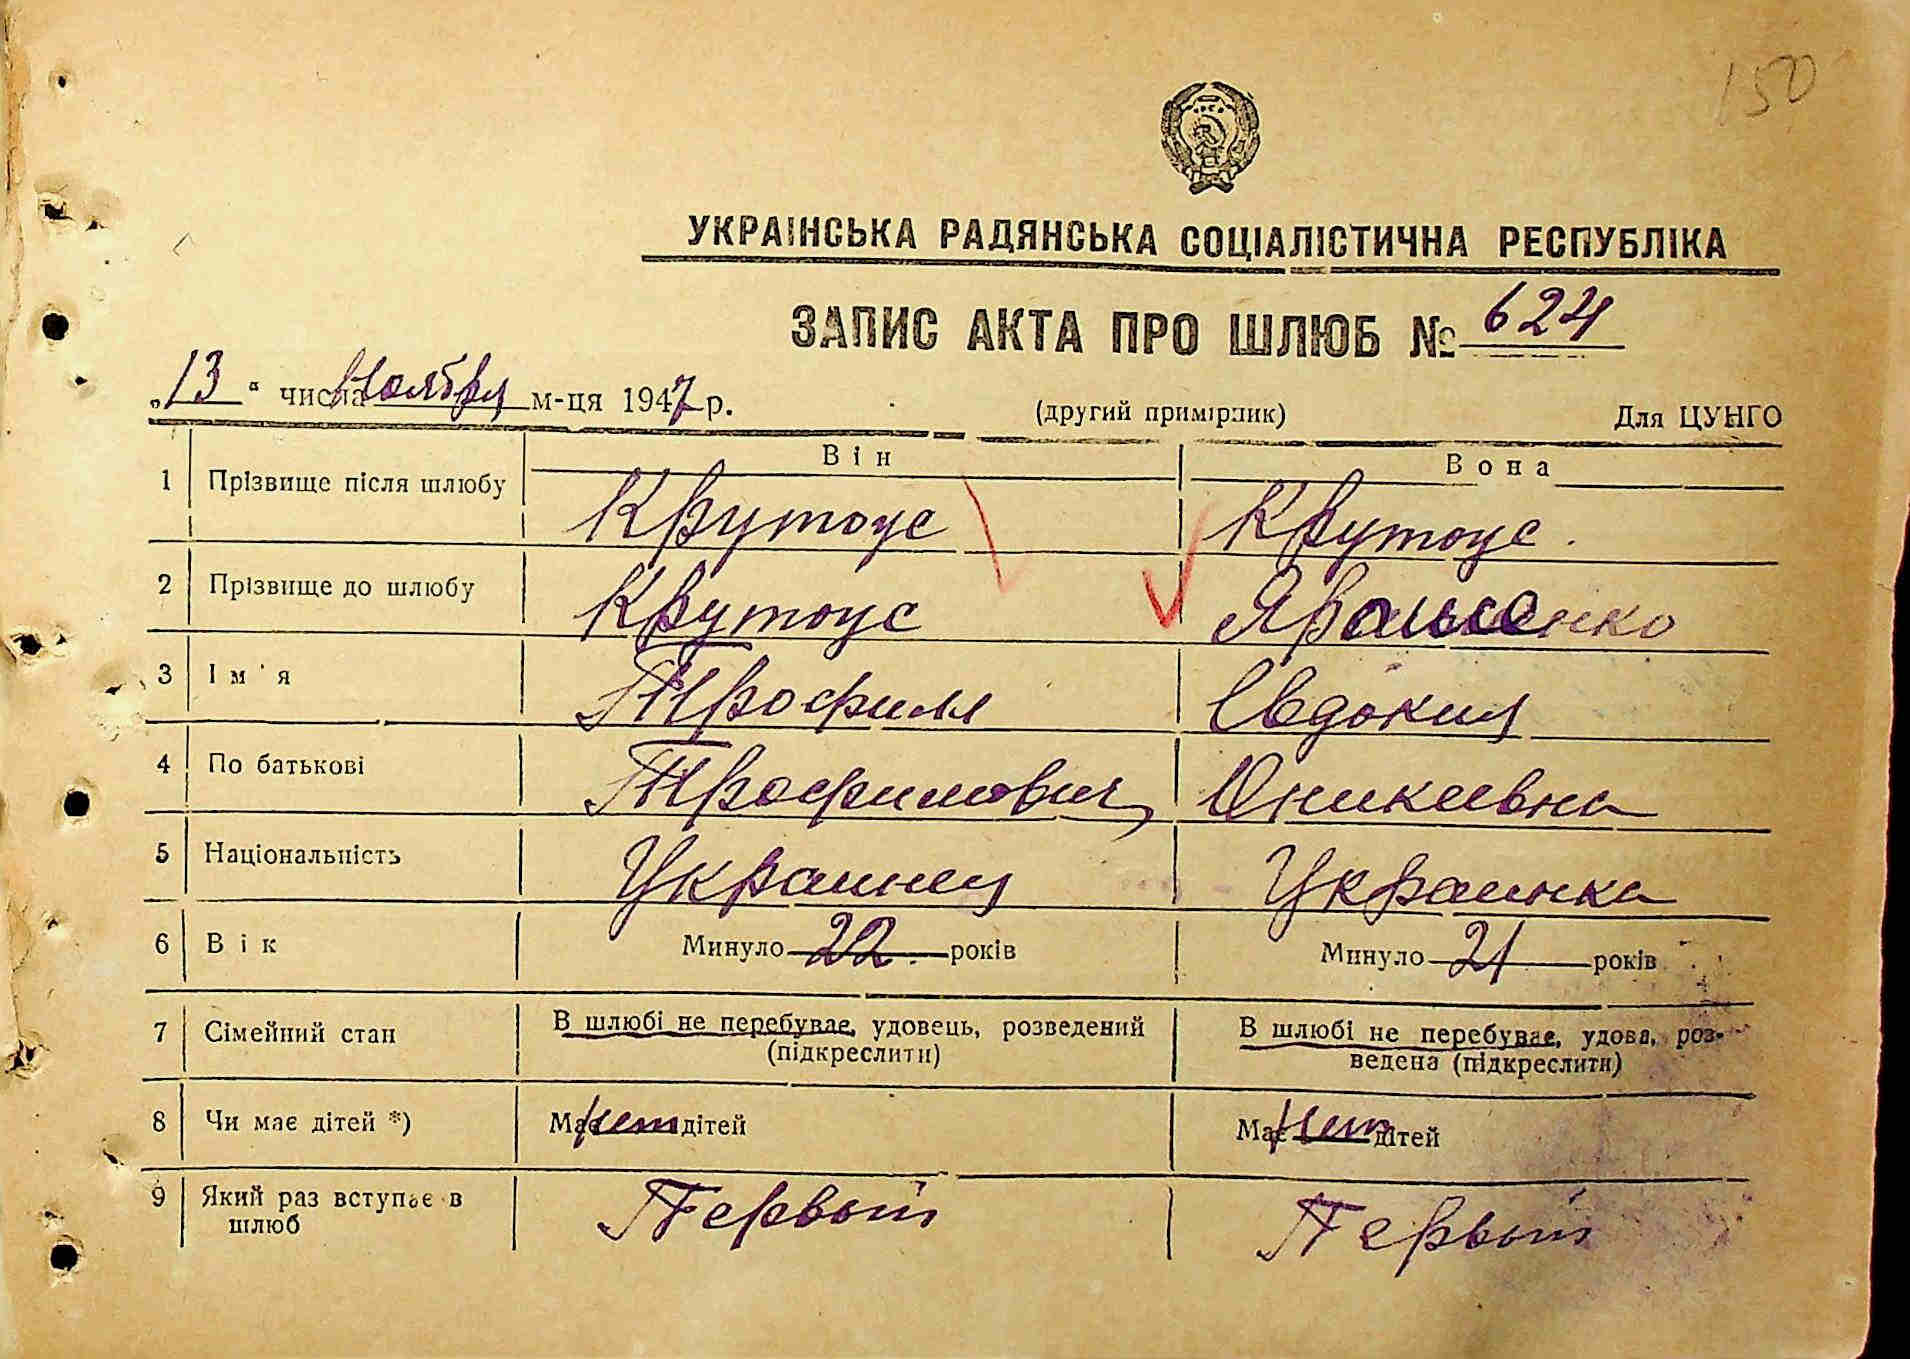 150
УКРАЇНСЬКА РАДЯНСЬКА СОЦІАЛІСТИЧНА РЕСПУБЛІКА
ЗАПИС АКТА ПРО ШЛЮБ № 624
„13“ числа Ноября м-ця 1947 р. (другий примірник) Для ЦУНГО
Він Вона
1 Прізвище після шлюбу Крутоус Крутоус.
2 Прізвище до шлюбу Крутоус
3 Ім'я Трофим Евдокия
4 По батькові Трофимович Оникеевна
5 Національність Украинец Украинка
6 Вік Минуло 22 років Минуло 21 років
7 Сімейний стан В шлюбі не перебуває, удовець, розведений В шлюбі не перебуває, удова, роз-
(підкреслити) ведена (підкреслити)
8 Чи має дітей *) Має нет дітей Має нет дітей
9 Який раз вступає в Первый Первый
шлюб